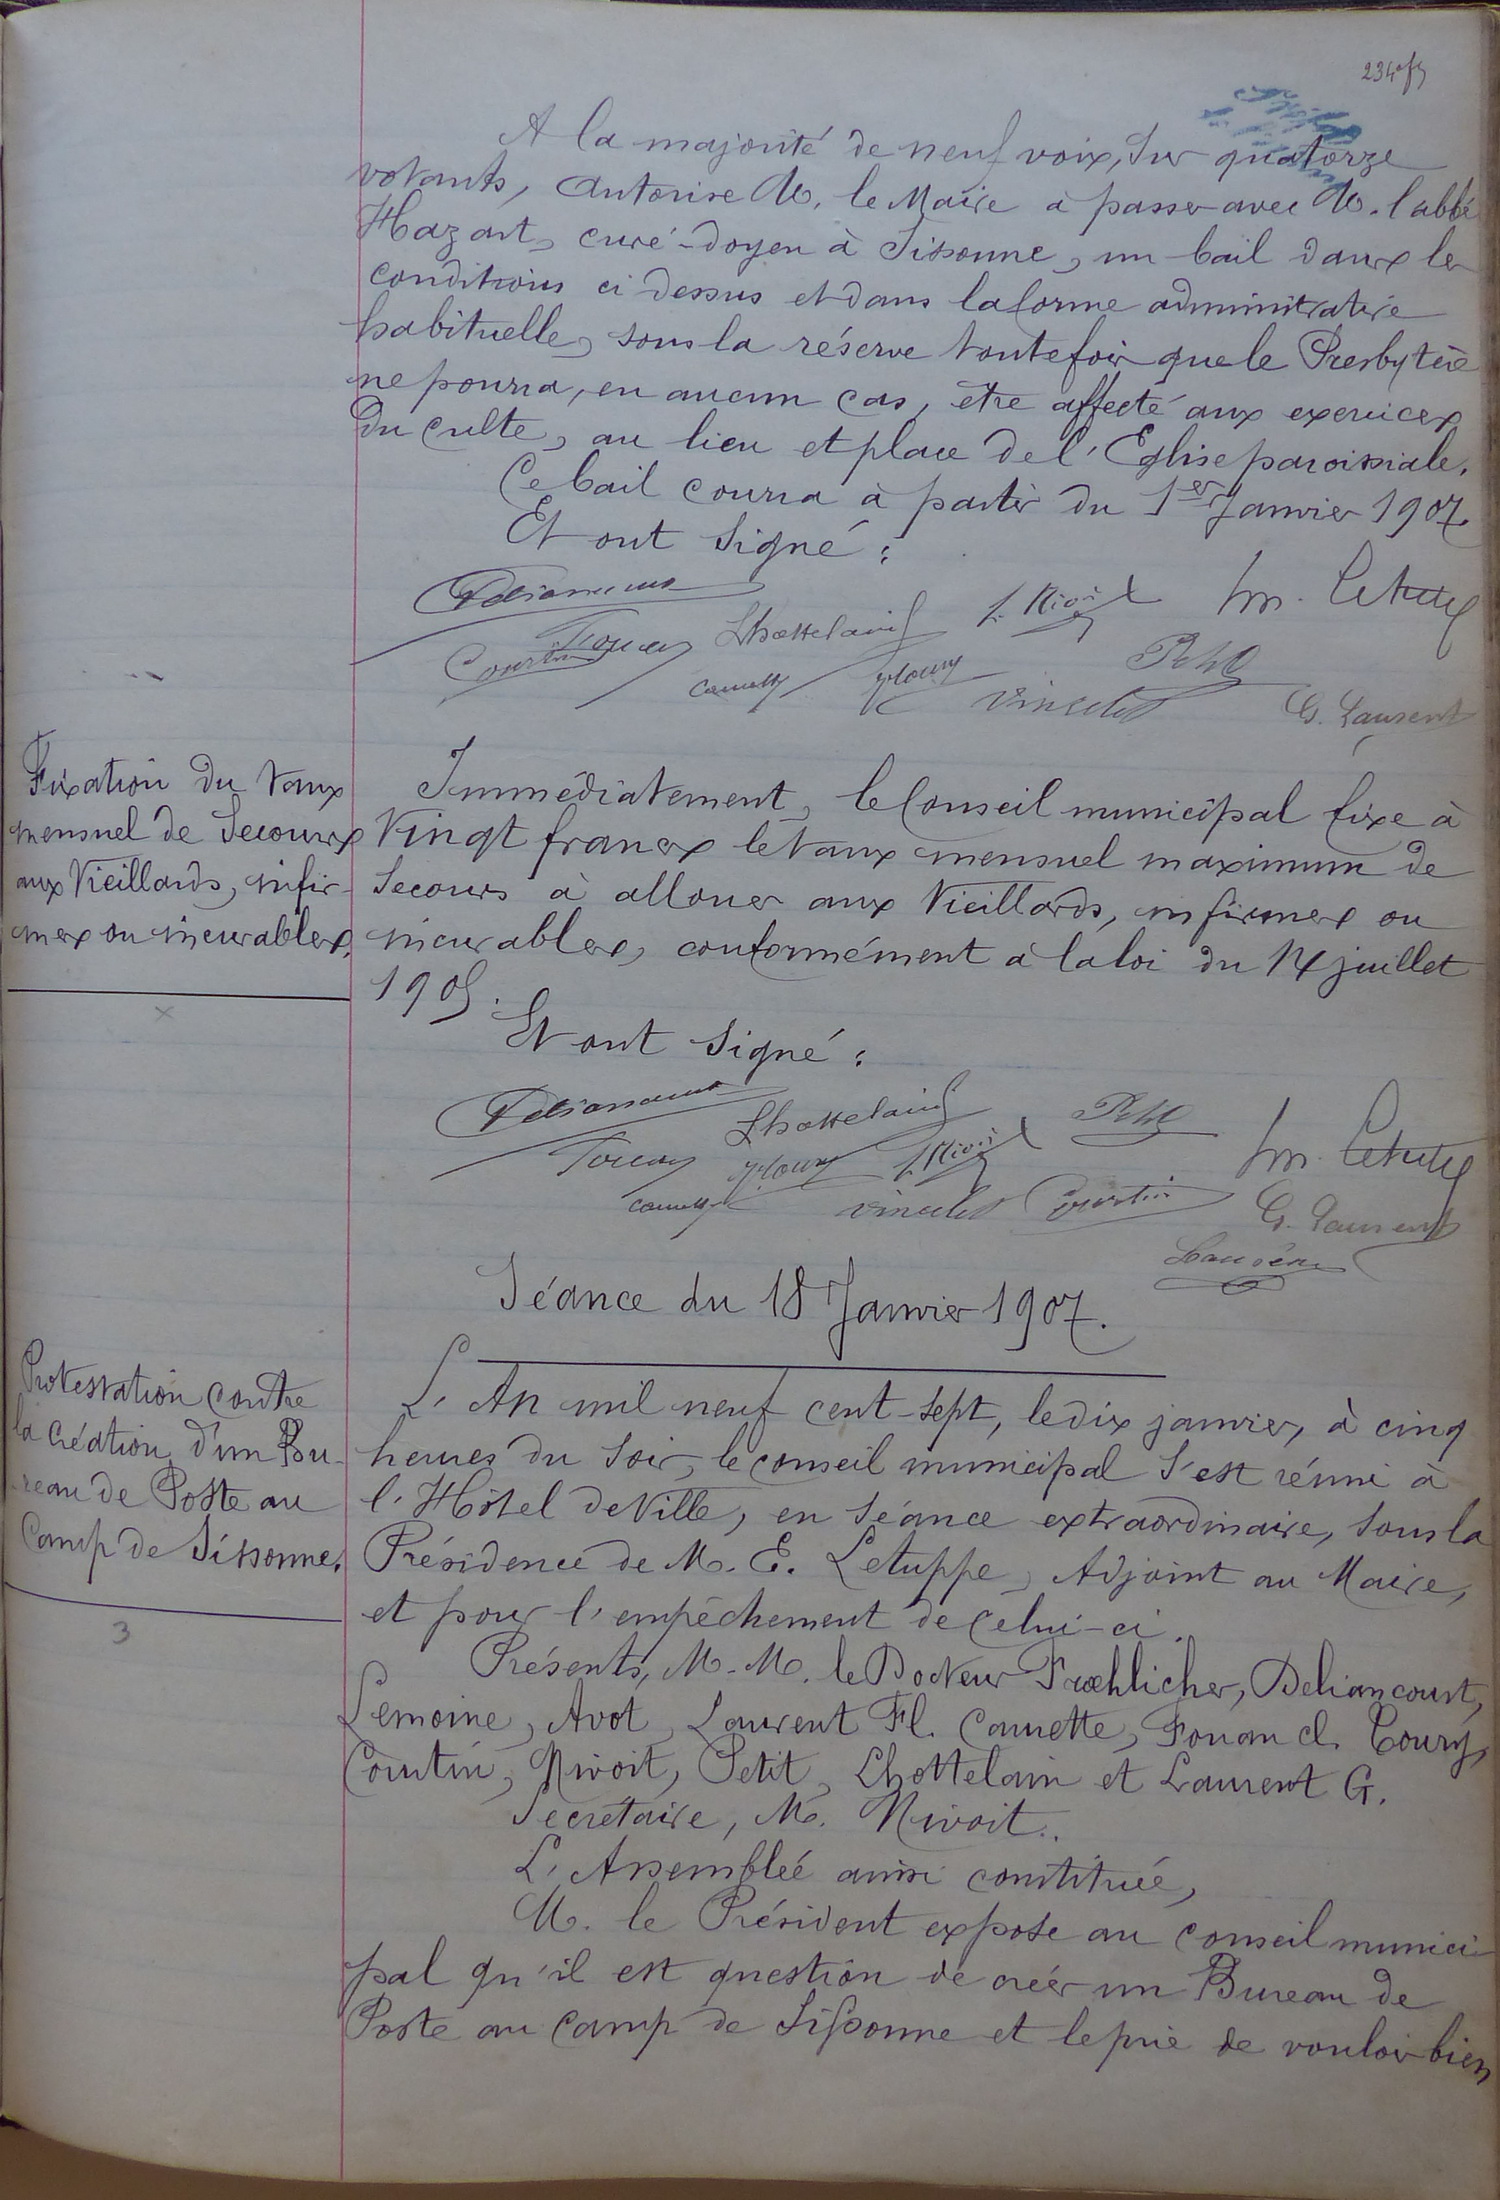 234
A la majorité de neuf voix, sur quatorze
votants, autorise M. le Maire à passer avec M. l'abbé
Hazart, curé-doyen à Sissonne, un bail dans les
conditions ci dessus et dans la forme administrative
habituelle, sous la réserve toutefois que le Presbytère
ne pourra, en aucun cas, être affecté aux exercices
du culte, au lieu et place de l'Eglise paroissiale.
Ce bail courra à partir du 1er Janvier 1907.
Et ont signé :
Lhottelain
L. Nivoit
Courtin
Camette
Vincelet
Petit
G. Laurent
Fixation du taux
mensuel de Secours
aux Vieillards, infir-
mes ou incurables.
Immédiatement, le Conseil municipal fixe à
Vingt francs le taux mensuel maximum de
Secours à allouer aux Vieillards, infirmes ou
incurables, conformément à la loi du 14 juillet
1905.
Et ont signé :
Lhottelain
Petit
L. Nivoit
Camette
Vincelet
Courtin
G. Laurent
Séance du 18 Janvier 1907.
Protestation contre
la création d'un Bu-
reau de Poste au
Camp de Sissonne.
3
L'An mil neuf cent-sept, le dix janvier, à cinq
heures du Soir, le conseil municipal s'est réuni à
l'Hôtel de Ville, en séance extraordinaire, sous la
Présidence de M. E. Letuppe, Adjoint au Maire,
et pour l'empêchement de celui-ci.
Présents, M. M. le Docteur Froehlicher, Deliancourt,
Lemoine, Avot, Laurent Fl. Camette, Fouan cl. Toury,
Courtin, Nivoit, Petit, Lhottelain et Laurent G.
Secrétaire, M. Nivoit.
L'Assemblée ainsi constituée,
M. le Président expose au conseil munici-
pal qu'il est question de créer un Bureau de
Poste au Camp de Sissonne et le prie de vouloir bien